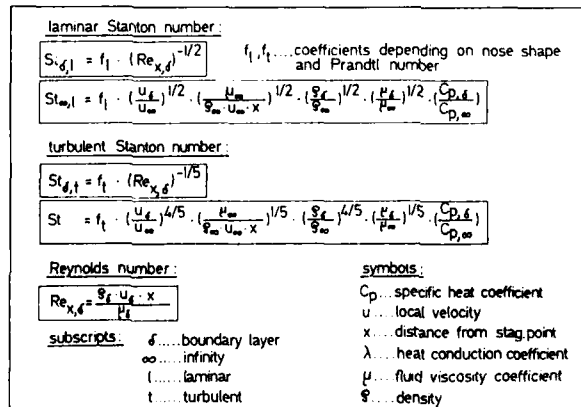 laminar Stanton number:
St_δ,l = f_l · (Re_x,δ)^-1/2
f_l, f_t ....coefficients depending on nose shape
and Prandtl number
St_∞,l = f_l · (u_δ/u_∞)^1/2 · (μ_∞/(ϱ_∞ · u_∞ · x))^1/2 · (ϱ_δ/ϱ_∞)^1/2 · (μ_δ/μ_∞)^1/2 · (C_p,δ/C_p,∞)
turbulent Stanton number:
St_δ,t = f_t · (Re_x,δ)^-1/5
St = f_t · (u_δ/u_∞)^4/5 · (μ_∞/(ϱ_∞ · u_∞ · x))^1/5 · (ϱ_δ/ϱ_∞)^4/5 · (μ_δ/μ_∞)^1/5 · (C_p,δ/C_p,∞)
Reynolds number:
Re_x,δ = (ϱ_δ · u_δ · x)/μ_δ
subscripts: δ .....boundary layer
∞ .....infinity
l ......laminar
t ......turbulent
symbols:
C_p ...specific heat coefficient
u ....local velocity
x ....distance from stag.point
λ ....heat conduction coefficient
μ ....fluid viscosity coefficient
ϱ .....density